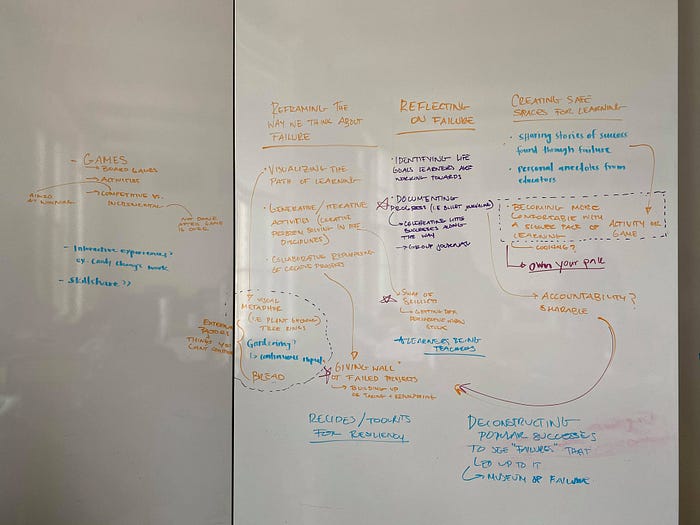 - GAMES
→ BOARD GAMES
→ ACTIVITIES
→ COMPETITIVE VS.
INCREMENTAL
NOT DONE
AFTER GAME
IS OVER
- Interactive experiences?
- Skillshare >>
REFRAMING THE
WAY WE THINK ABOUT
FAILURE
• VISUALIZING THE
PATH OF LEARNING
• GENERATIVE / ITERATIVE
ACTIVITIES (CREATIVE
PROBLEM SOLVING IN
DISCIPLINES)
• COLLABORATIVE REPURPOSING
OF CREATIVE PROJECTS
→ VISUAL
METAPHOR
(I.E PLANT GROWING
TREE RINGS)
Gardening?
↳ continuous input
BREAD
EXTERNAL
FACTORS
THINGS YOU
CAN'T CONTROL
"GIVING WALL"
OF FAILED PROJECTS
↳ BUILDING UP
OR TAKING + REPURPOSING
RECIPES/TOOLKITS
FOR RESILIENCY
REFLECTING
ON FAILURE
• IDENTIFYING LIFE
GOALS LEARNERS ARE
WORKING TOWARDS
• DOCUMENTING
PROGRESS (I.E BULLET JOURNALING)
↳ CELEBRATING LITTLE
SUCCESSES ALONG
THE WAY
→ GROUP JOURNALING
→ SWAP OF
SKILLSETS
↳ GETTING DIFF
PERSPECTIVE WHEN
STUCK
LEARNERS BEING
TEACHERS
CREATING SAFE
SPACES FOR LEARNING
• Sharing stories of success
found through failure
• Personal anecdotes from
educators
• BECOMING MORE
COMFORTABLE WITH
A SLOWER PACE OF
LEARNING
ACTIVITY OR
GAME
↳ COOKING?
↳ OWN YOUR PACE
→ ACCOUNTABILITY?
SHARABLE
DECONSTRUCTING
POPULAR SUCCESSES
TO SEE "FAILURES" THAT
LED UP TO IT
↳ MUSEUM OF FAILURE